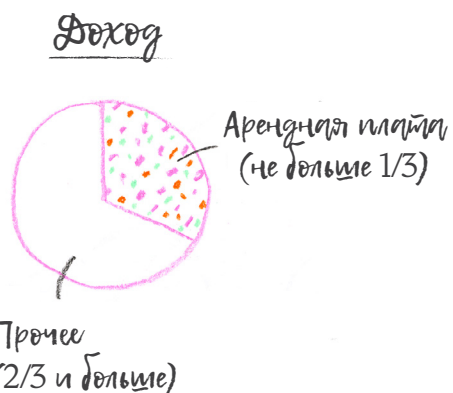 Доход
Арендная плата
(не больше 1/3)
Прочее
(2/3 и больше)